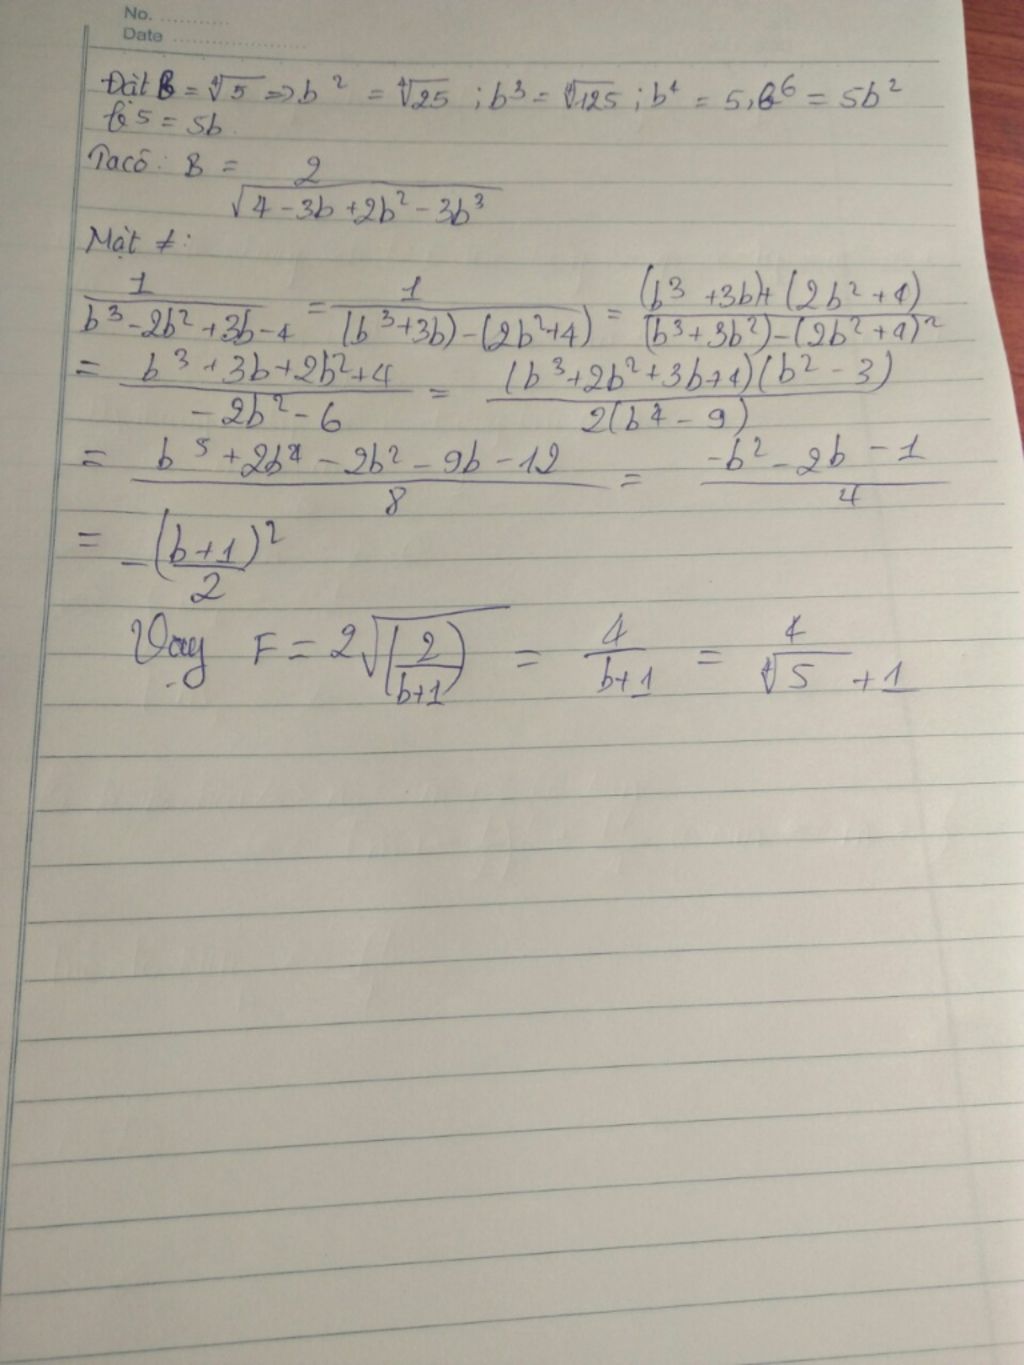 No. ..........
Date ....................
Đặt b = ⁴√5 => b² = ⁴√25 ; b³ = ⁴√125 ; b⁴ = 5, b⁶ = 5b²
b⁵ = 5b
Ta có: B = 2 / √(4 - 3b + 2b² - 3b³)
Mặt ≠:
1 / (b³ - 2b² + 3b - 4) = 1 / ((b³+3b) - (2b²+4)) = ((b³ + 3b) + (2b² + 4)) / ((b³+3b²) - (2b² + 4)²
= (b³ + 3b + 2b² + 4) / (-2b² - 6) = (b³ + 2b² + 3b + 4)(b² - 3) / 2(b⁴ - 9)
= (b⁵ + 2b⁴ - 2b² - 9b - 12) / 8 = (-b² - 2b - 1) / 4
= -((b+1) / 2)²
Vậy F = 2√(2 / (b+1)) = 4 / (b+1) = 4 / (⁴√5 + 1)